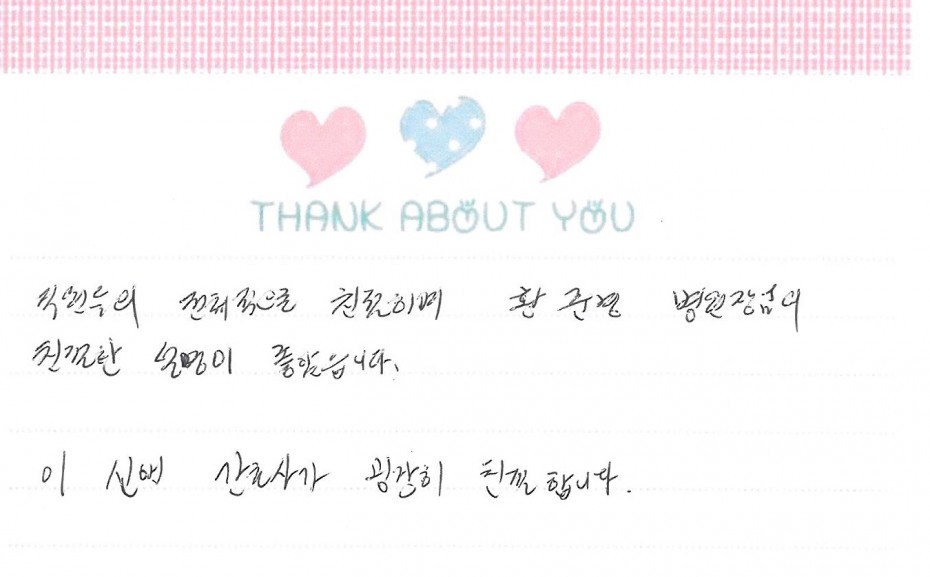 THANK ABOUT YOU
직원들의 전체적으로 친절하며 황준연 병원장님의
친절한 설명이 좋았습니다.
이 신애 간호사가 굉장히 친절합니다.